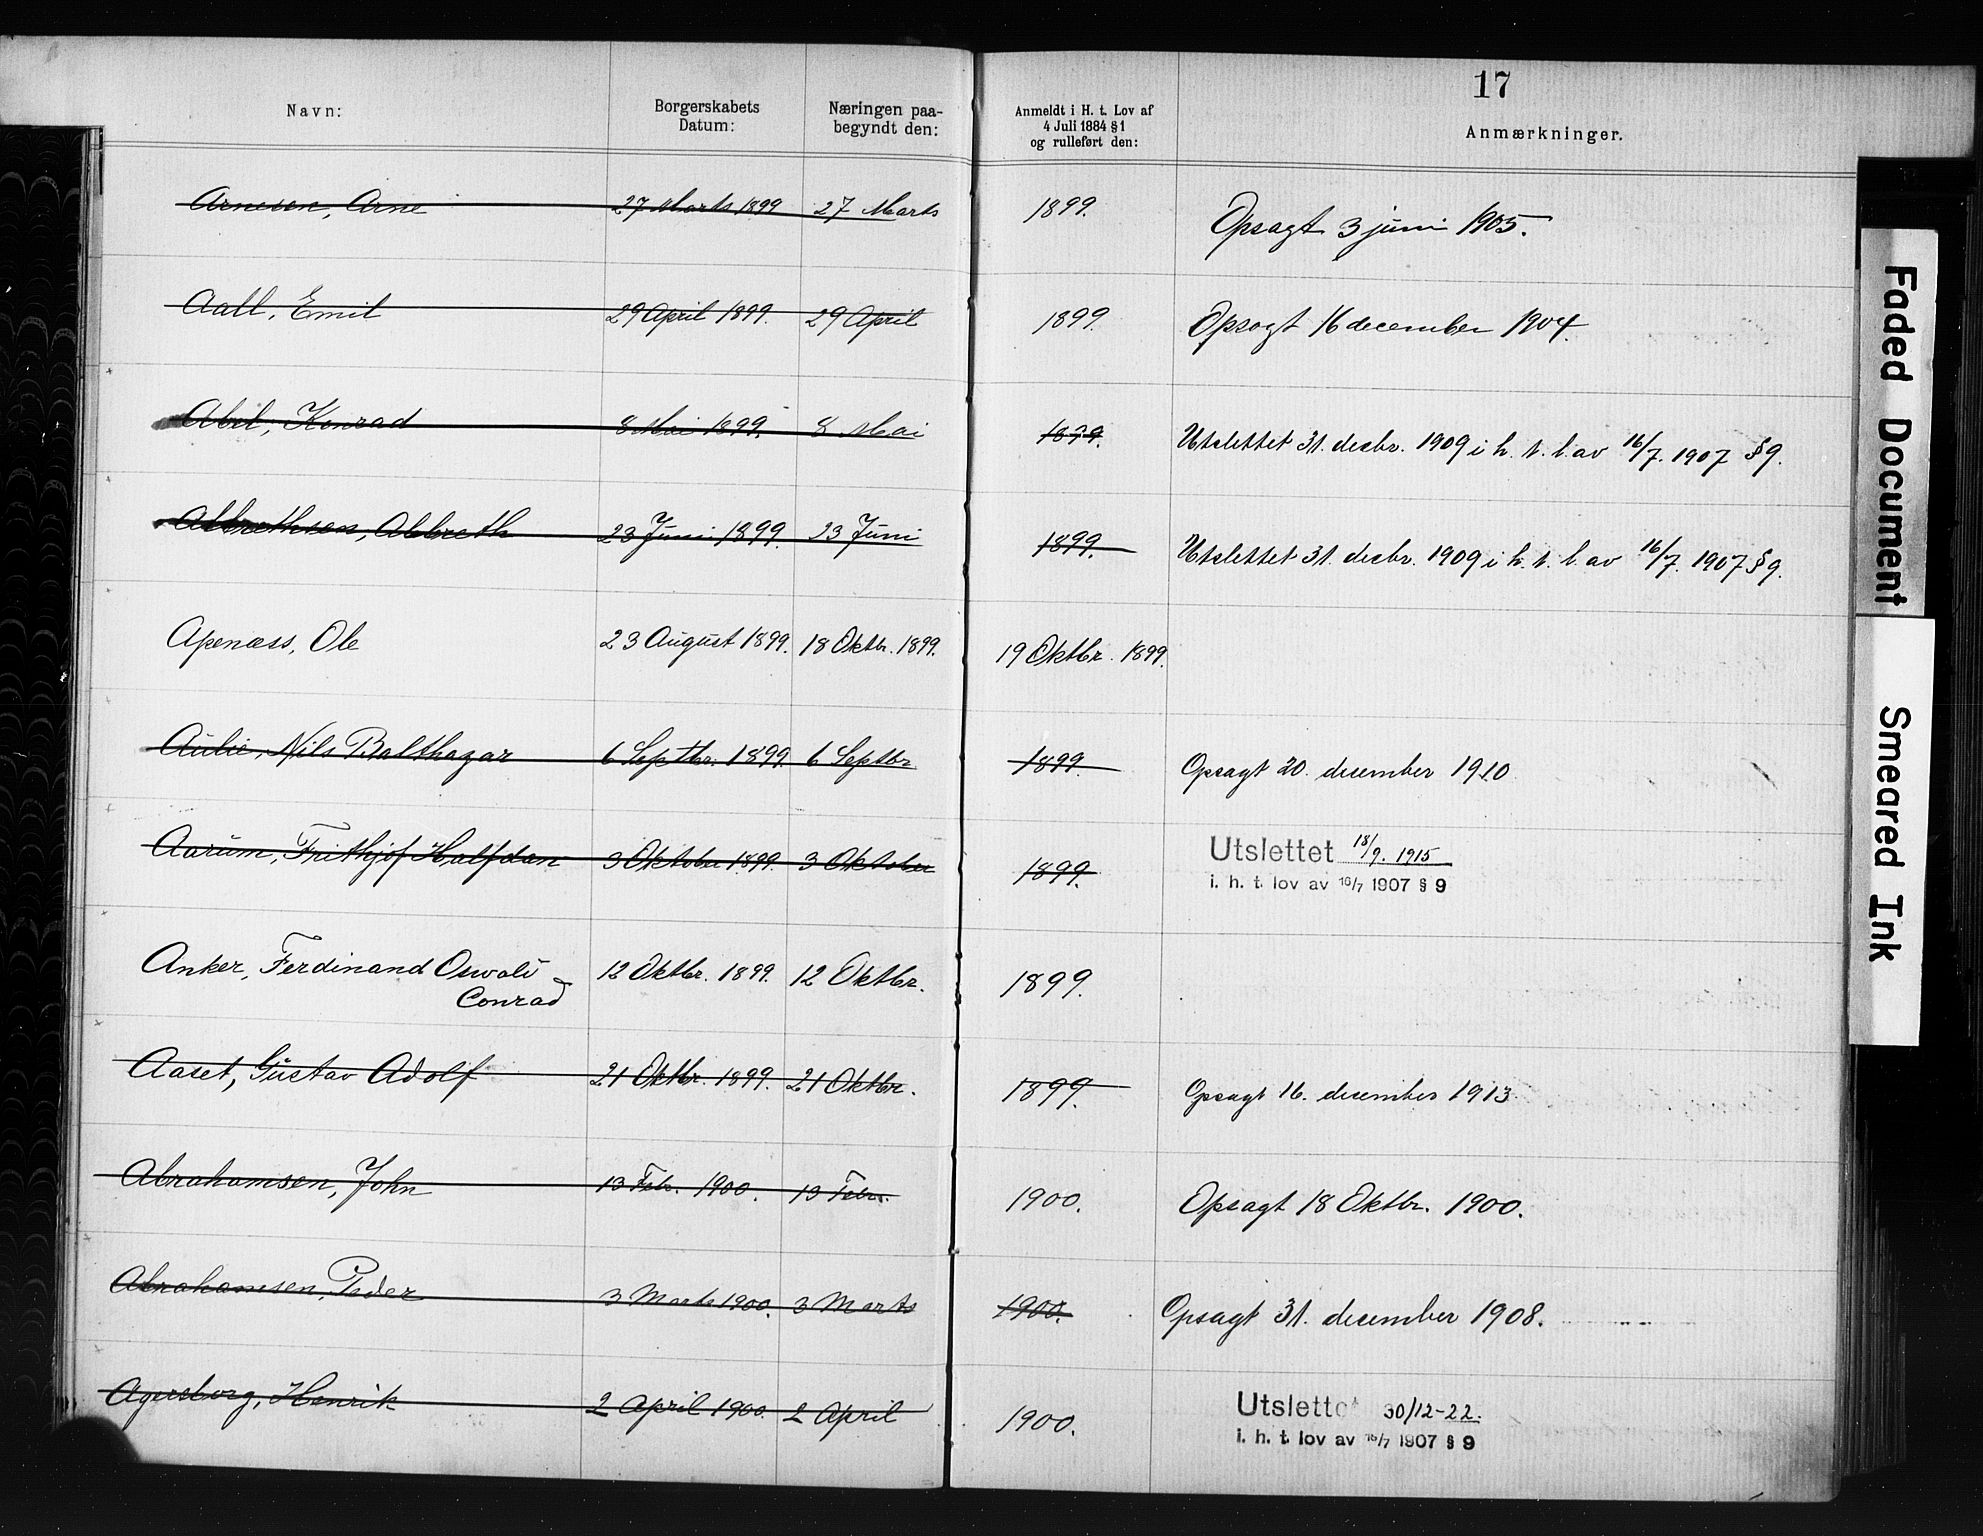 17
Navn:
Borgerskabets Datum:
Næringen paabegyndt den:
Anmeldt i H. t. Lov af 4 Juli 1884 § 1 og rulleført den:
Anmærkninger.
Arnesen, Arne 27 Marts 1899 27 Marts 1899. Opsagt 3 juni 1905.
Aall, Emil 29 April 1899. 29 April 1899. Opsagt 16 december 1904.
Abel, Konrad 8 Mai 1899. 8 Mai 1899. Utslettet 31. decbr. 1909 i h. t. l. av 16/7. 1907 § 9.
Albrethsen, Albreth 23 Juni 1899. 23 Juni 1899. Utslettet 31. decbr. 1909 i h. t. l. av 16/7. 1907 § 9.
Apenæss, Ole 23 August 1899. 18 Oktbr. 1899. 19 Oktbr. 1899.
Aulie, Nils Balthazar 6 Septbr. 1899. 6 Septbr 1899. Opsagt 20. december 1910
Aarum, Frithjof Halfdan 3 Oktober 1899. 3 Oktober 1899. Utslettet 18/9. 1915
i. h. t. lov av 16/7 1907 § 9
Anker, Ferdinand Oswald 12 Oktbr. 1899. 12 Oktbr. 1899.
Conrad
Aaset, Gustav Adolf 21 Oktbr. 1899. 21 Oktbr. 1899. Opsagt 16. december 1913
Abrahamsen, John 13 Febr. 1900. 13 Febr. 1900. Opsagt 18 Oktbr. 1900.
Abrahamsen, Peder 3 Marts 1900. 3 Marts 1900. Opsagt 31. december 1908.
Agersborg, Henrik 2 April 1900. 2 April 1900. Utslettet 30/12-22.
i. h. t. lov av 16/7 1907 § 9
Faded Document
Smeared Ink